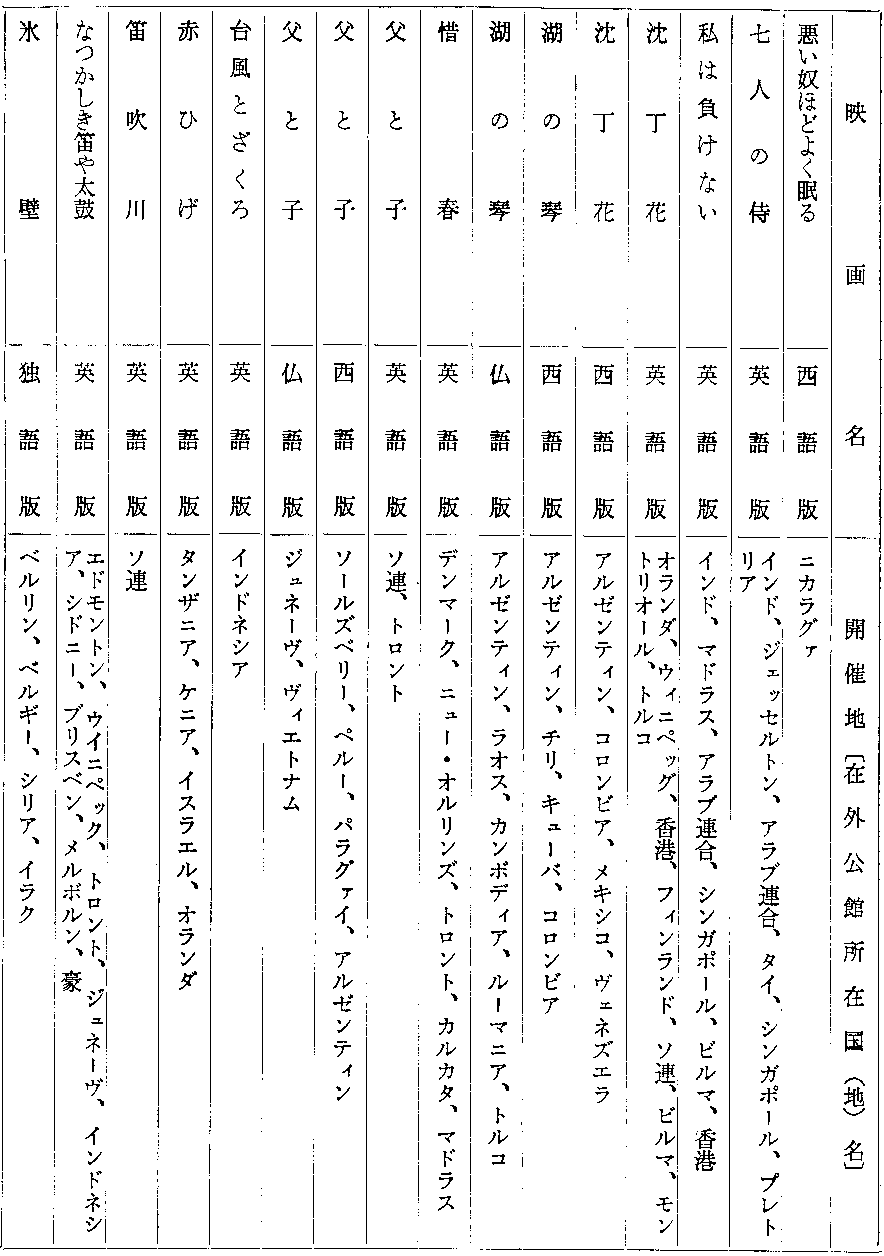 映画名 開催地〔在外公館所在国(地)名〕
悪い奴ほどよく眠る 西語版 ニカラグァ
七人の侍 英語版 インド、ジェッセルトン、アラブ連合、タイ、シンガポール、プレト
リア
私は負けない 英語版 インド、マドラス、アラブ連合、シンガポール、ビルマ、香港
沈丁花 英語版 オランダ、ウィニペッグ、香港、フィンランド、ソ連、ビルマ、モン
トリオール、トルコ
沈丁花 西語版 アルゼンティン、コロンビア、メキシコ、ヴェネズエラ
湖の琴 西語版 アルゼンティン、チリ、キューバ、コロンビア
湖の琴 仏語版 アルゼンティン、ラオス、カンボディア、ルーマニア、トルコ
惜春 英語版 デンマーク、ニュー・オルリンズ、トロント、カルカタ、マドラス
父と子 英語版 ソ連、トロント
父と子 西語版 ソールズベリー、ペルー、パラグァイ、アルゼンティン
父と子 仏語版 ジュネーヴ、ヴィエトナム
台風とざくろ 英語版 インドネシア
赤ひげ 英語版 タンザニア、ケニア、イスラエル、オランダ
笛吹川 英語版 ソ連
なつかしき笛や太鼓 英語版 エドモントン、ウイニペック、トロント、ジュネーヴ、インドネシ
ア、シドニー、ブリスベン、メルボルン、豪
氷壁 独語版 ベルリン、ベルギー、シリア、イラク